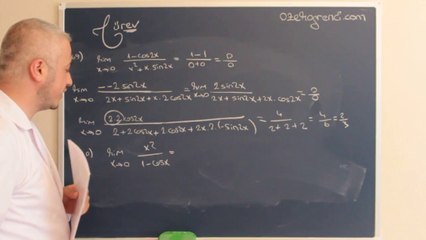 Türev
ozelogrenci.com
lim x→0 1-cos2x / x²+x.sin2x = 1-1 / 0+0 = 0/0
lim x→0 --2.sin2x / 2x+sin2x+x.2cos2x = lim x→0 2sin2x / 2x+sin2x+2x.cos2x = 0/0
lim x→0 2.2cos2x / 2+2cos2x+2cos2x+2x.2.(-sin2x) = 4 / 2+2+2 = 4/6 = 2/3
lim x→0 x² / 1-cosx =